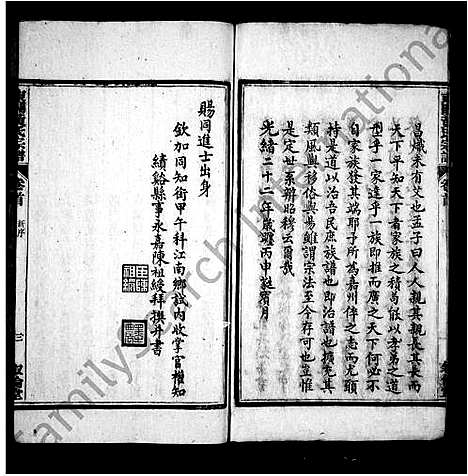 昌熾未有艾也孟子曰人人親其親長其長而
天下平知天下者家族之積苟能以孝弟之道
型乎一家達乎一族即推而廣之天下何必不
自家族發其端耶予所為嘉州倅之志而尤願
持是道以治吾民庶族譜也即治譜也擴充其
類風興移俗與易雖謂宗法至今存可也豈惟
是定世系辨昭穆云爾哉
光緒二十二年歲躔丙申蕤賓月
賜同進士出身
欽加同知銜甲午科江南鄉試內收掌官權知
績谿縣事永嘉陳祖綬拜撰并書
卷首
新序
三
敘倫堂
FamilySearch International